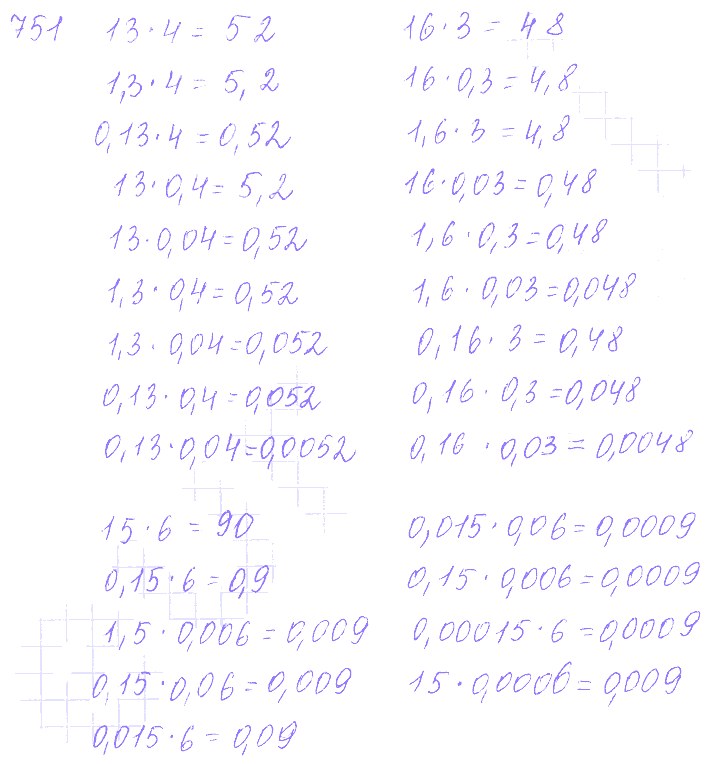 751 13·4 = 52
1,3·4 = 5,2
0,13·4 = 0,52
13·0,4 = 5,2
13·0,04 = 0,52
1,3·0,4 = 0,52
1,3·0,04 = 0,052
0,13·0,4 = 0,052
0,13·0,04 = 0,0052
16·3 = 48
16·0,3 = 4,8
1,6·3 = 4,8
16·0,03 = 0,48
1,6·0,3 = 0,48
1,6·0,03 = 0,048
0,16·3 = 0,48
0,16·0,3 = 0,048
0,16·0,03 = 0,0048
15·6 = 90
0,15·6 = 0,9
1,5·0,006 = 0,009
0,15·0,06 = 0,009
0,015·6 = 0,09
0,015·0,06 = 0,0009
0,15·0,006 = 0,0009
0,00015·6 = 0,0009
15·0,0006 = 0,009